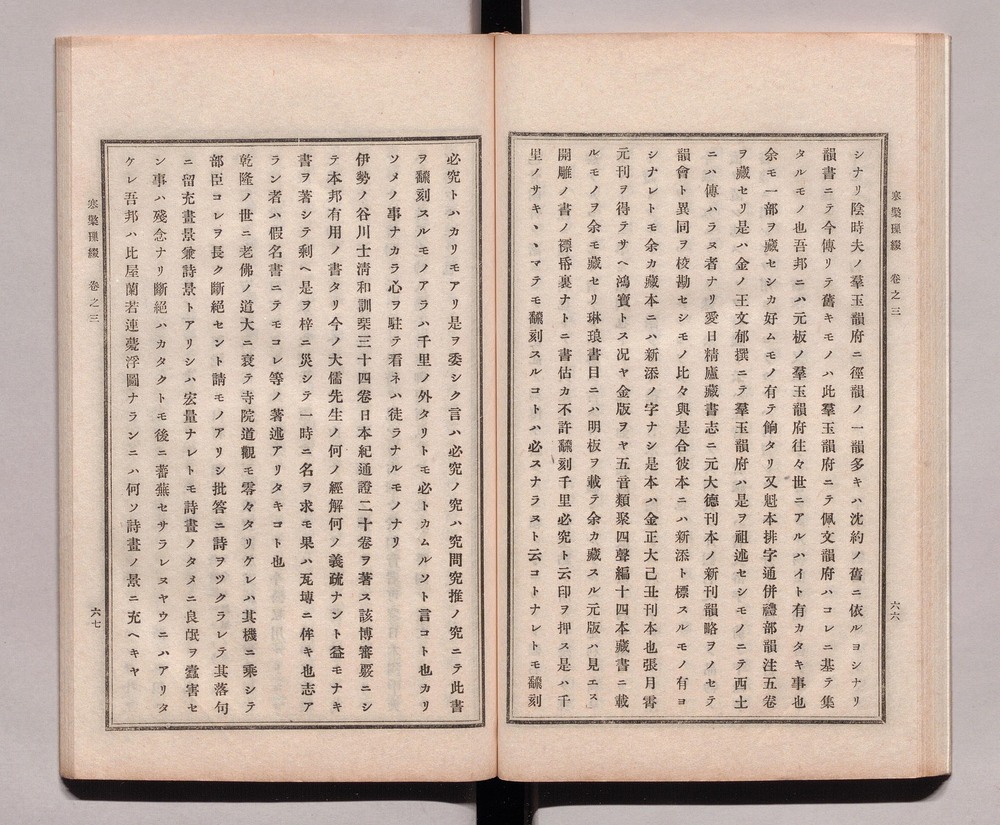 寒檠璅綴 卷之三
六六
シナリ陰時夫ノ羣玉韻府ニ徑韻ノ一韻多キハ沈約ノ舊ニ依ルヨシナリ
韻書ニテ今傳リテ舊キモノハ此羣玉韻府ニテ佩文韻府ハコレニ基テ集
タルモノ也吾邦ニハ元板ノ羣玉韻府往々世ニアルハイト有カタキ事也
余モ一部ヲ藏セシカ好ムモノ有テ餉タリ又魁本排字通併禮部韻注五卷
ヲ藏セリ是ハ金ノ王文郁撰ニテ羣玉韻府ハ是ヲ祖述セシモノニテ西土
ニハ傳ハラヌ者ナリ愛日精廬藏書志ニ元大德刊本ノ新刊韻略ヲノセテ
韻會ト異同ヲ校勘セシモノ比々與是合彼本ニハ新添ト標スルモノ有ヨ
シナレトモ余カ藏本ニハ新添ノ字ナシ是本ハ金正大己丑刊本也張月霄
元刊ヲ得テサヘ鴻寶トス况ヤ金版ヲヤ五音類聚四聲編十四本藏書ニ載
ルモノヲ余モ藏セリ琳琅書目ニハ明板ヲ載テ余カ藏スル元版ハ見エス
開雕ノ書ノ褾帋裏ナトニ書估カ不許飜刻千里必究ト云印ヲ押ス是ハ千
里ノサキヽヽマテモ飜刻スルコトハ必スナラスト云コトナレトモ飜刻
必究トハカリモアリ是ヲ委シク言ハ必究ノ究ハ究問究推ノ究ニテ此書
ヲ飜刻スルモノアラハ千里ノ外タリトモ必トカムルソト言コト也カリ
ソメノ事ナカラ心ヲ駐テ看ネハ徒ラナルモノナリ
伊勢ノ谷川士淸和訓栞三十四卷日本紀通證二十卷ヲ著ス該博審覈ニシ
テ本邦有用ノ書タリ今ノ大儒先生ノ何ノ經解何ノ義疏ナント益モナキ
書ヲ著シテ剩ヘ是ヲ梓ニ災シテ一時ニ名ヲ求モ果ハ瓦塼ニ侔キ也志ア
ラン者ハ假名書ニテモコレ等ノ著述アリタキコト也
乾隆ノ世ニ老佛ノ道大ニ衰テ寺院道觀モ零々タリケレハ其機ニ乘シテ
部臣コレヲ長ク斷絕セント請モノアリシ批答ニ詩ヲツクラレテ其落句
ニ留充畫景兼詩景トアリシハ宏量ナレトモ詩畫ノタメニ良氓ヲ蠧害セ
ン事ハ殘念ナリ斷絕ハカタクトモ後ニ蕃蕪セサラレヌヤウニハアリタ
ケレ吾邦ハ比屋蘭若連甍浮圖ナランニハ何ソ詩畫ノ景ニ充ヘキヤ
寒檠璅綴 卷之三
六七